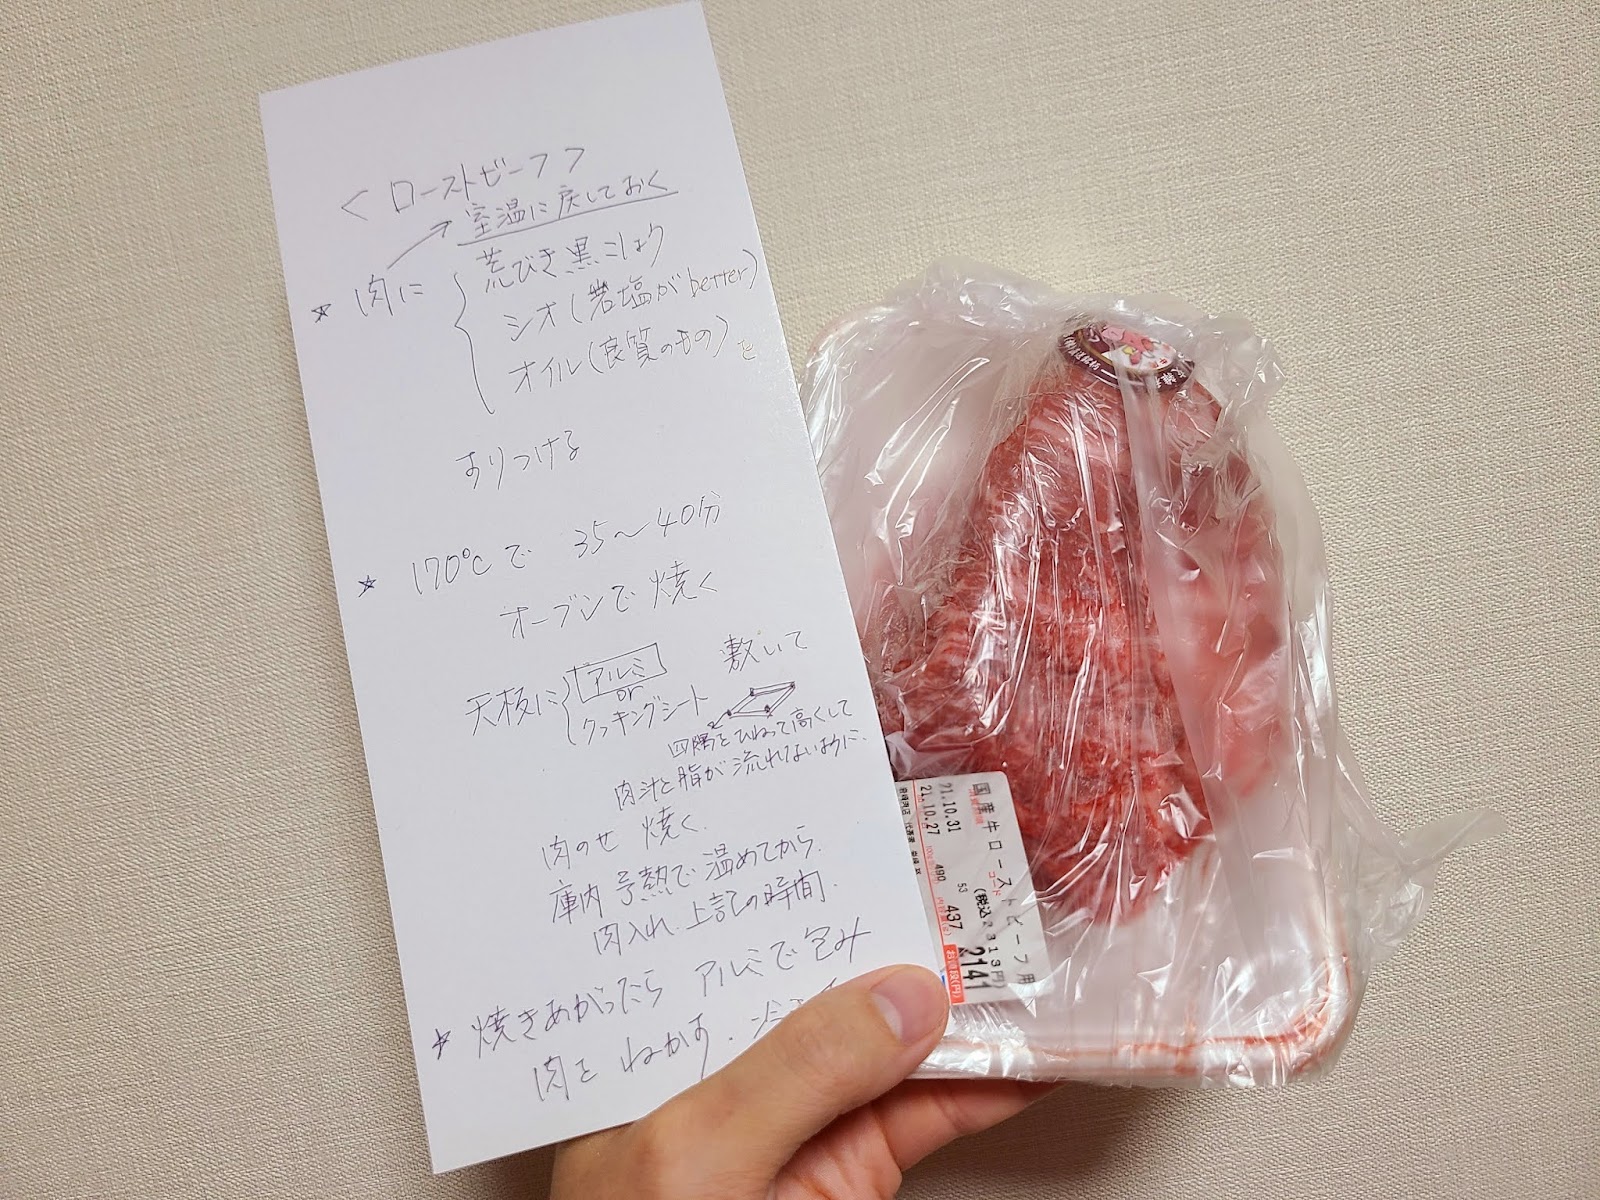 ＜ローストビーフ＞
室温に戻しておく
☆ 肉に
荒びき黒こしょう
シオ(岩塩がbetter)
オイル(良質のもの)を
すりつける
☆ 170℃で 35〜40分
オーブンで焼く
天板に アルミ or クッキングシート 敷いて
四隅をひねって高くして
肉汁と脂が流れないように.
肉のせ 焼く.
庫内 予熱で温めてから.
肉入れ. 上記の時間.
☆ 焼きあがったら アルミで包み
肉を ねかす.
国産牛ローストビーフ用
21.10.31
21.10.27
490
53
437
(税込2313円)
2141